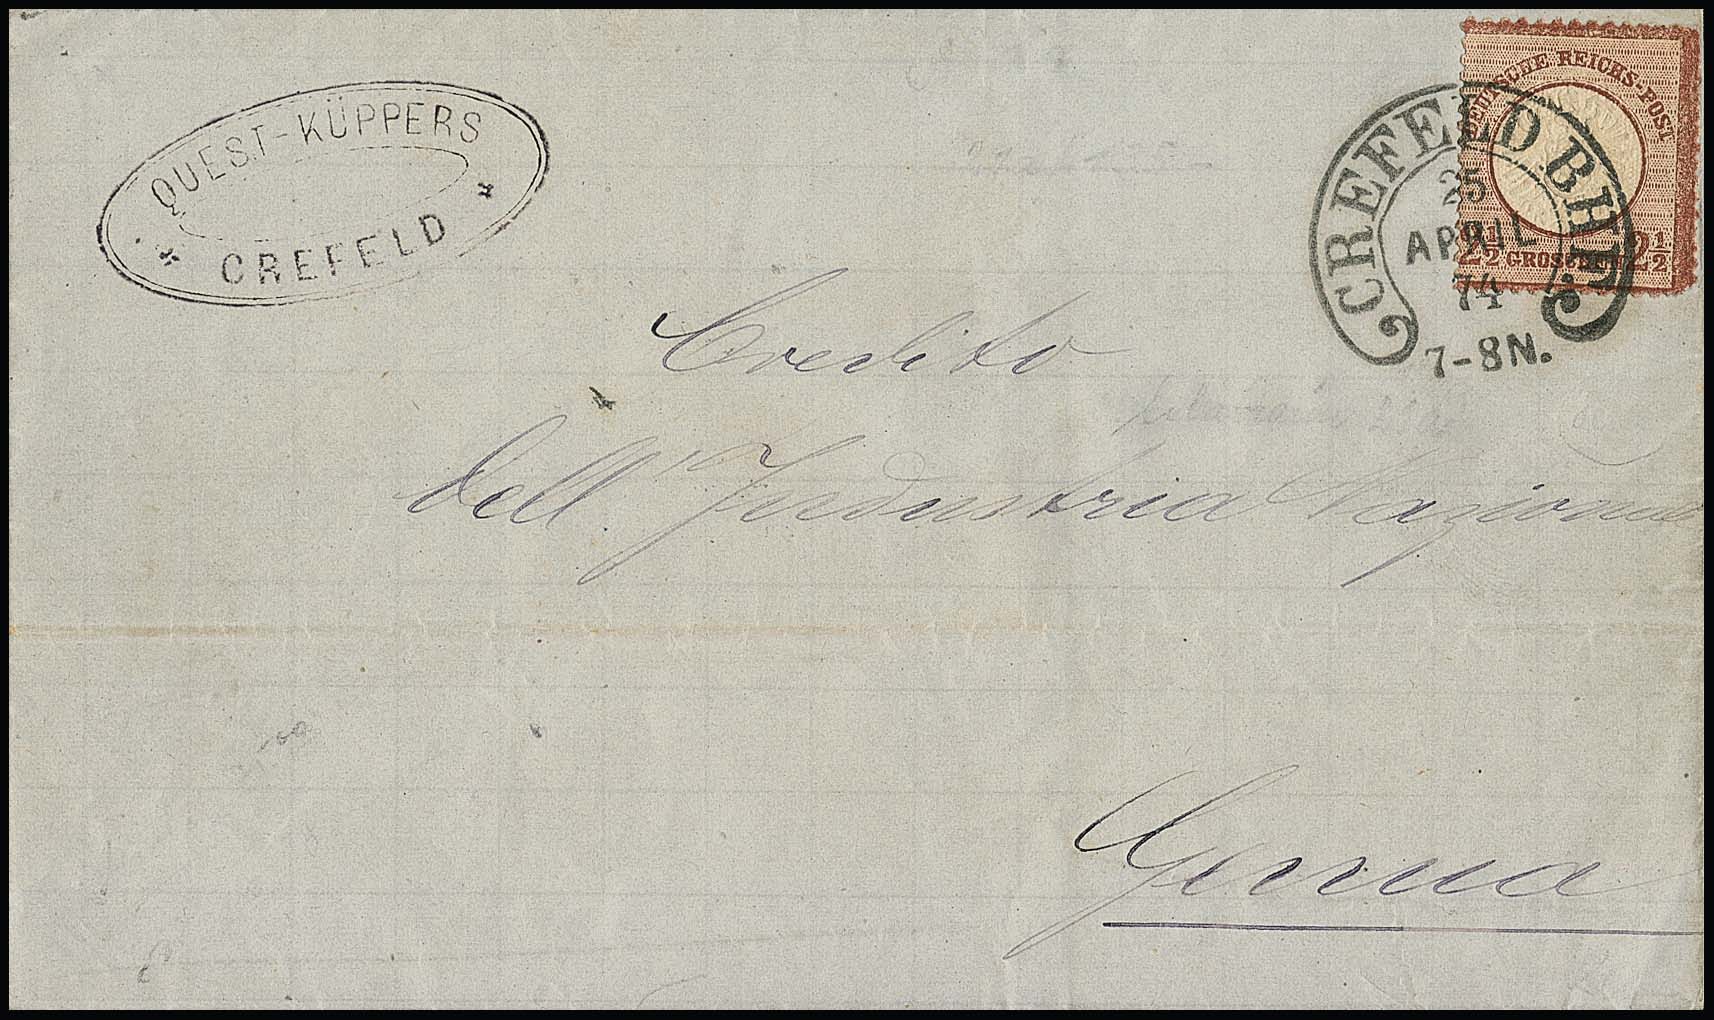 QUEST-KÜPPERS
CREFELD
DEUTSCHE REICHS-POST
2½ GROSCHEN 2½
CREFELD BHF.
25
APRIL
74
7-8N.
Credito
dell'Industria Nazionale
Genua